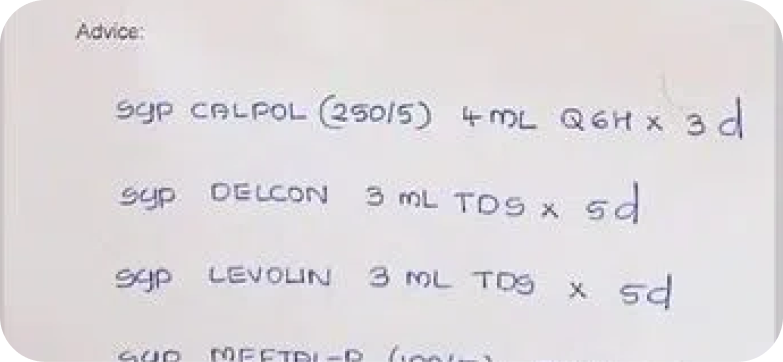 Advice:
syp CALPOL (250/5) 4 mL Q6H x 3 d
syp DELCON 3 mL TDS x 5d
syp LEVOLIN 3 mL TDS x 5d
syp